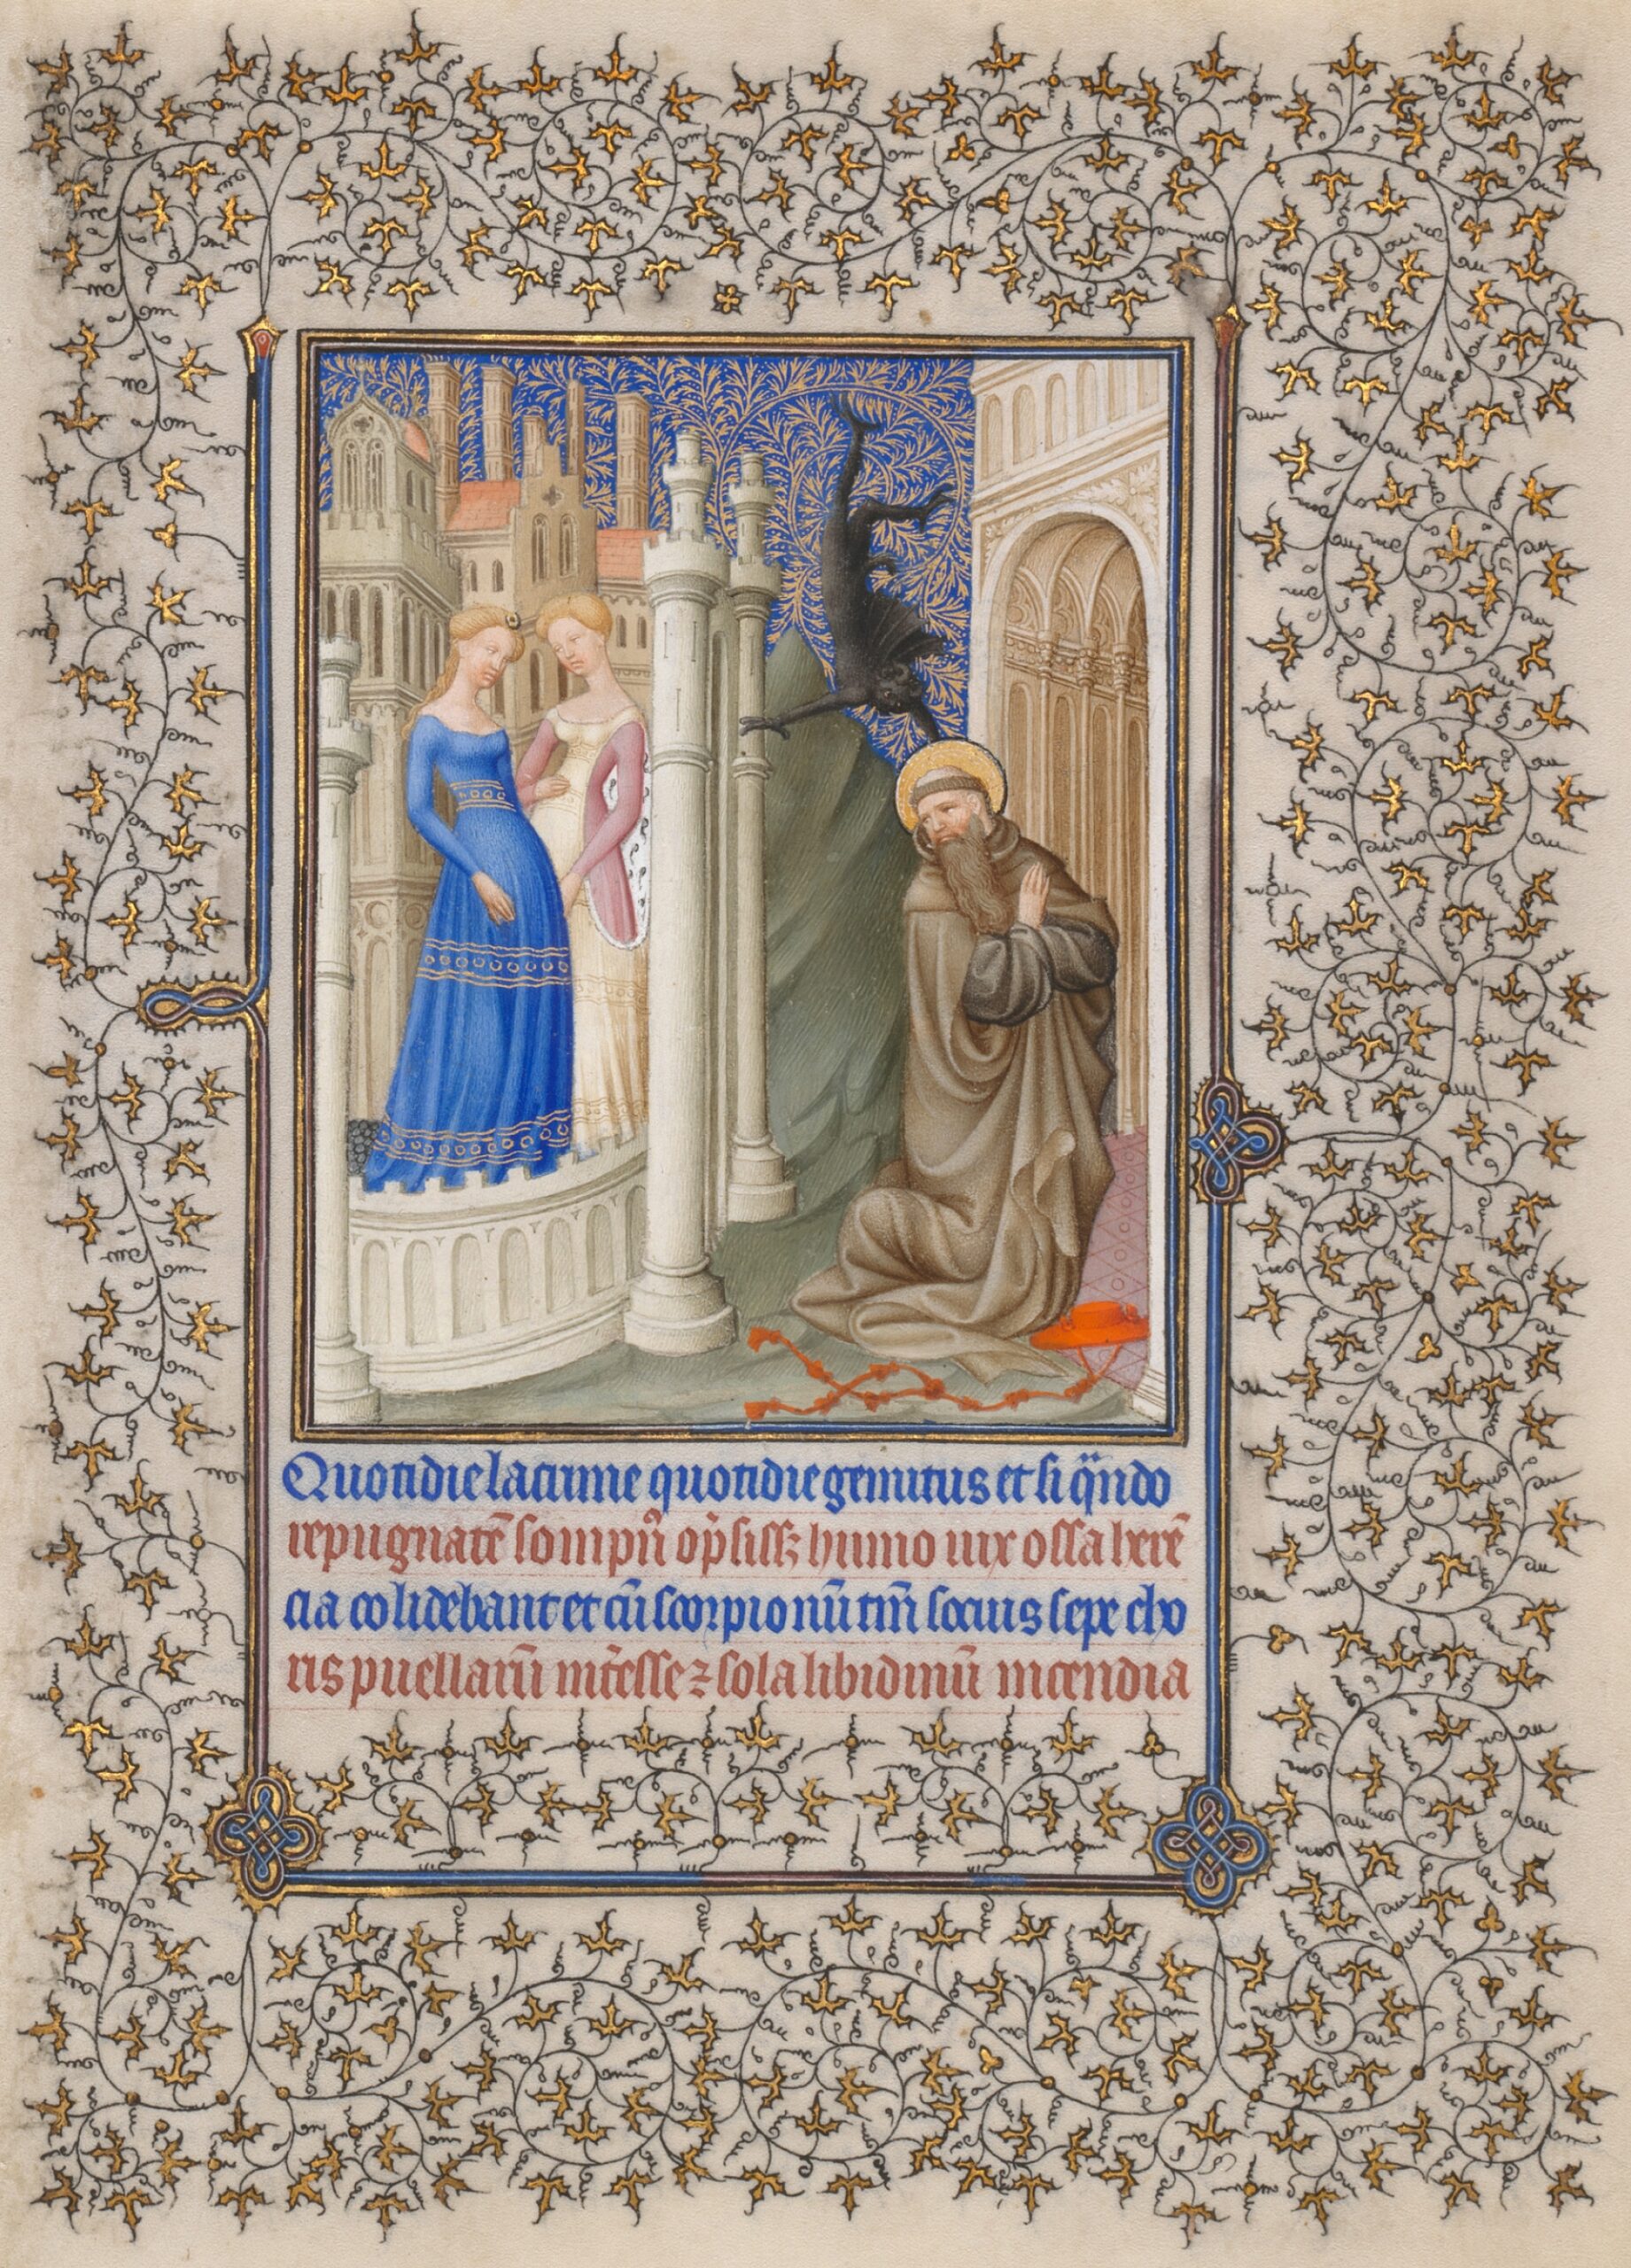 Quotidie lacrime quotidie gemitus et si qn̄do
repugnatē sompn̄ op̄sissꝫ humo uix ossa herē
cia colidebant et cū scorpionū tm̄ socius sepe cho
ris puellarū int̄esse ⁊ sola libidinū incendia